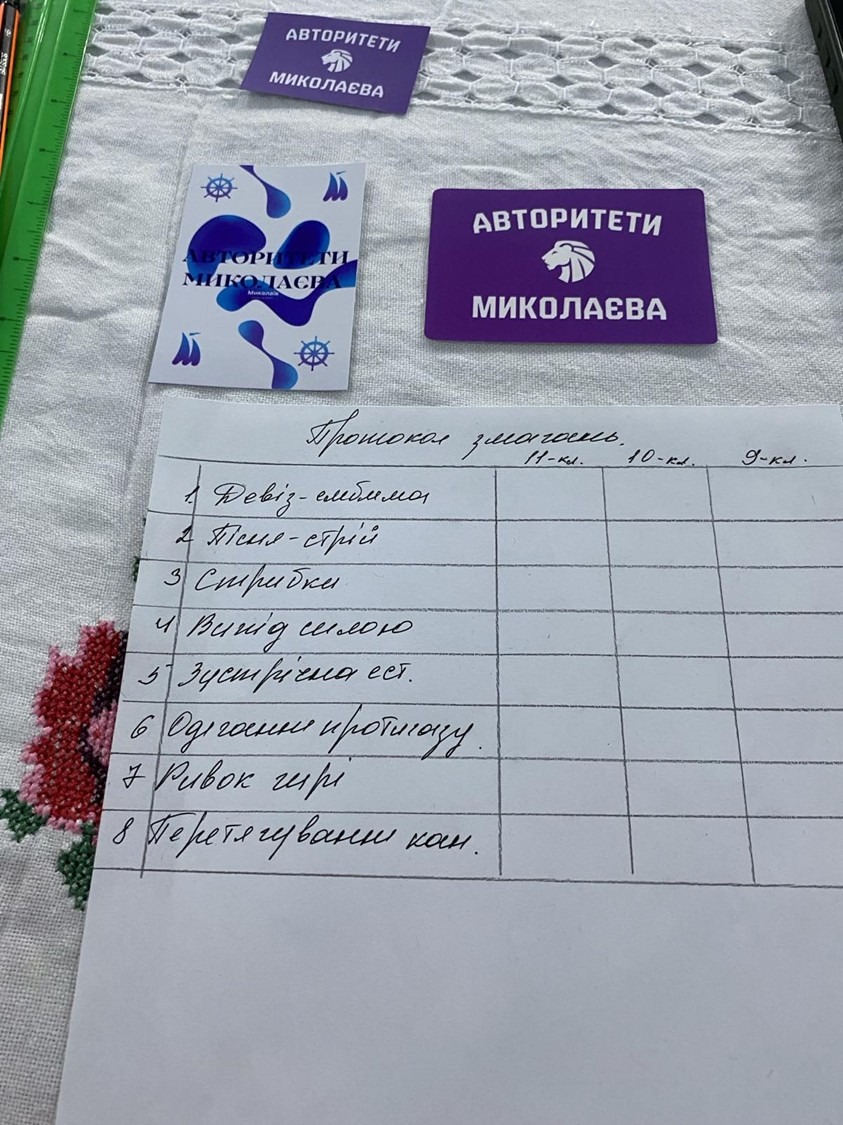 АВТОРИТЕТИ
МИКОЛАЄВА
АВТОРИТЕТИ
МИКОЛАЄВА
Миколаїв
АВТОРИТЕТИ
МИКОЛАЄВА
Протокол змагань.
11-кл. 10-кл. 9-кл.
1. Девіз-емблема
2 Пісня-стрій
3 Стрибки
4 Вихід силою
5 Зустрічна ест.
6 Одягання протигазу.
7 Ривок гирі
8 Перетягування кан.